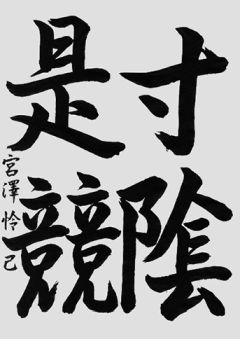 寸陰
是競
宮澤怜己